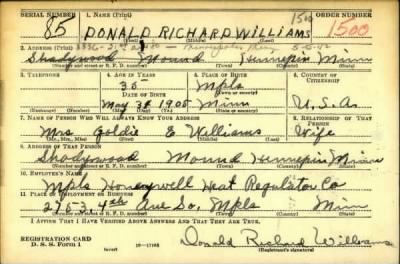 SERIAL NUMBER 1. NAME (Print) 1500 ORDER NUMBER
85 DONALD RICHARD WILLIAMS 1500
(First) (Middle) (Last)
2. ADDRESS (Print) 3336-21st Minneapolis Minn
Shadywood Mound Hennepin Minn
(Number and street or R. F. D. number) (Town) (County) (State)
3. TELEPHONE 4. AGE IN YEARS 5. PLACE OF BIRTH 6. COUNTRY OF CITIZENSHIP
35 Mpls
DATE OF BIRTH
May 31 1905 Minn U.S.A.
(Exchange) (Number) (Mo.) (Day) (Yr.) (State or country)
7. NAME OF PERSON WHO WILL ALWAYS KNOW YOUR ADDRESS 8. RELATIONSHIP OF THAT PERSON
Mrs Goldie E Williams Wife
(Mr., Mrs., Miss) (First) (Middle) (Last)
9. ADDRESS OF THAT PERSON
Shadywood Mound Hennepin Minn
(Number and street or R. F. D. number) (Town) (County) (State)
10. EMPLOYER'S NAME
Mpls Honeywell Heat Regulator Co
11. PLACE OF EMPLOYMENT OR BUSINESS
2753, 4th Ave So, Mpls Minn
(Number and street or R. F. D. number) (Town) (County) (State)
I AFFIRM THAT I HAVE VERIFIED ABOVE ANSWERS AND THAT THEY ARE TRUE.
REGISTRATION CARD
D. S. S. Form 1 (over) Donald Richard Williams
(Registrant's signature)